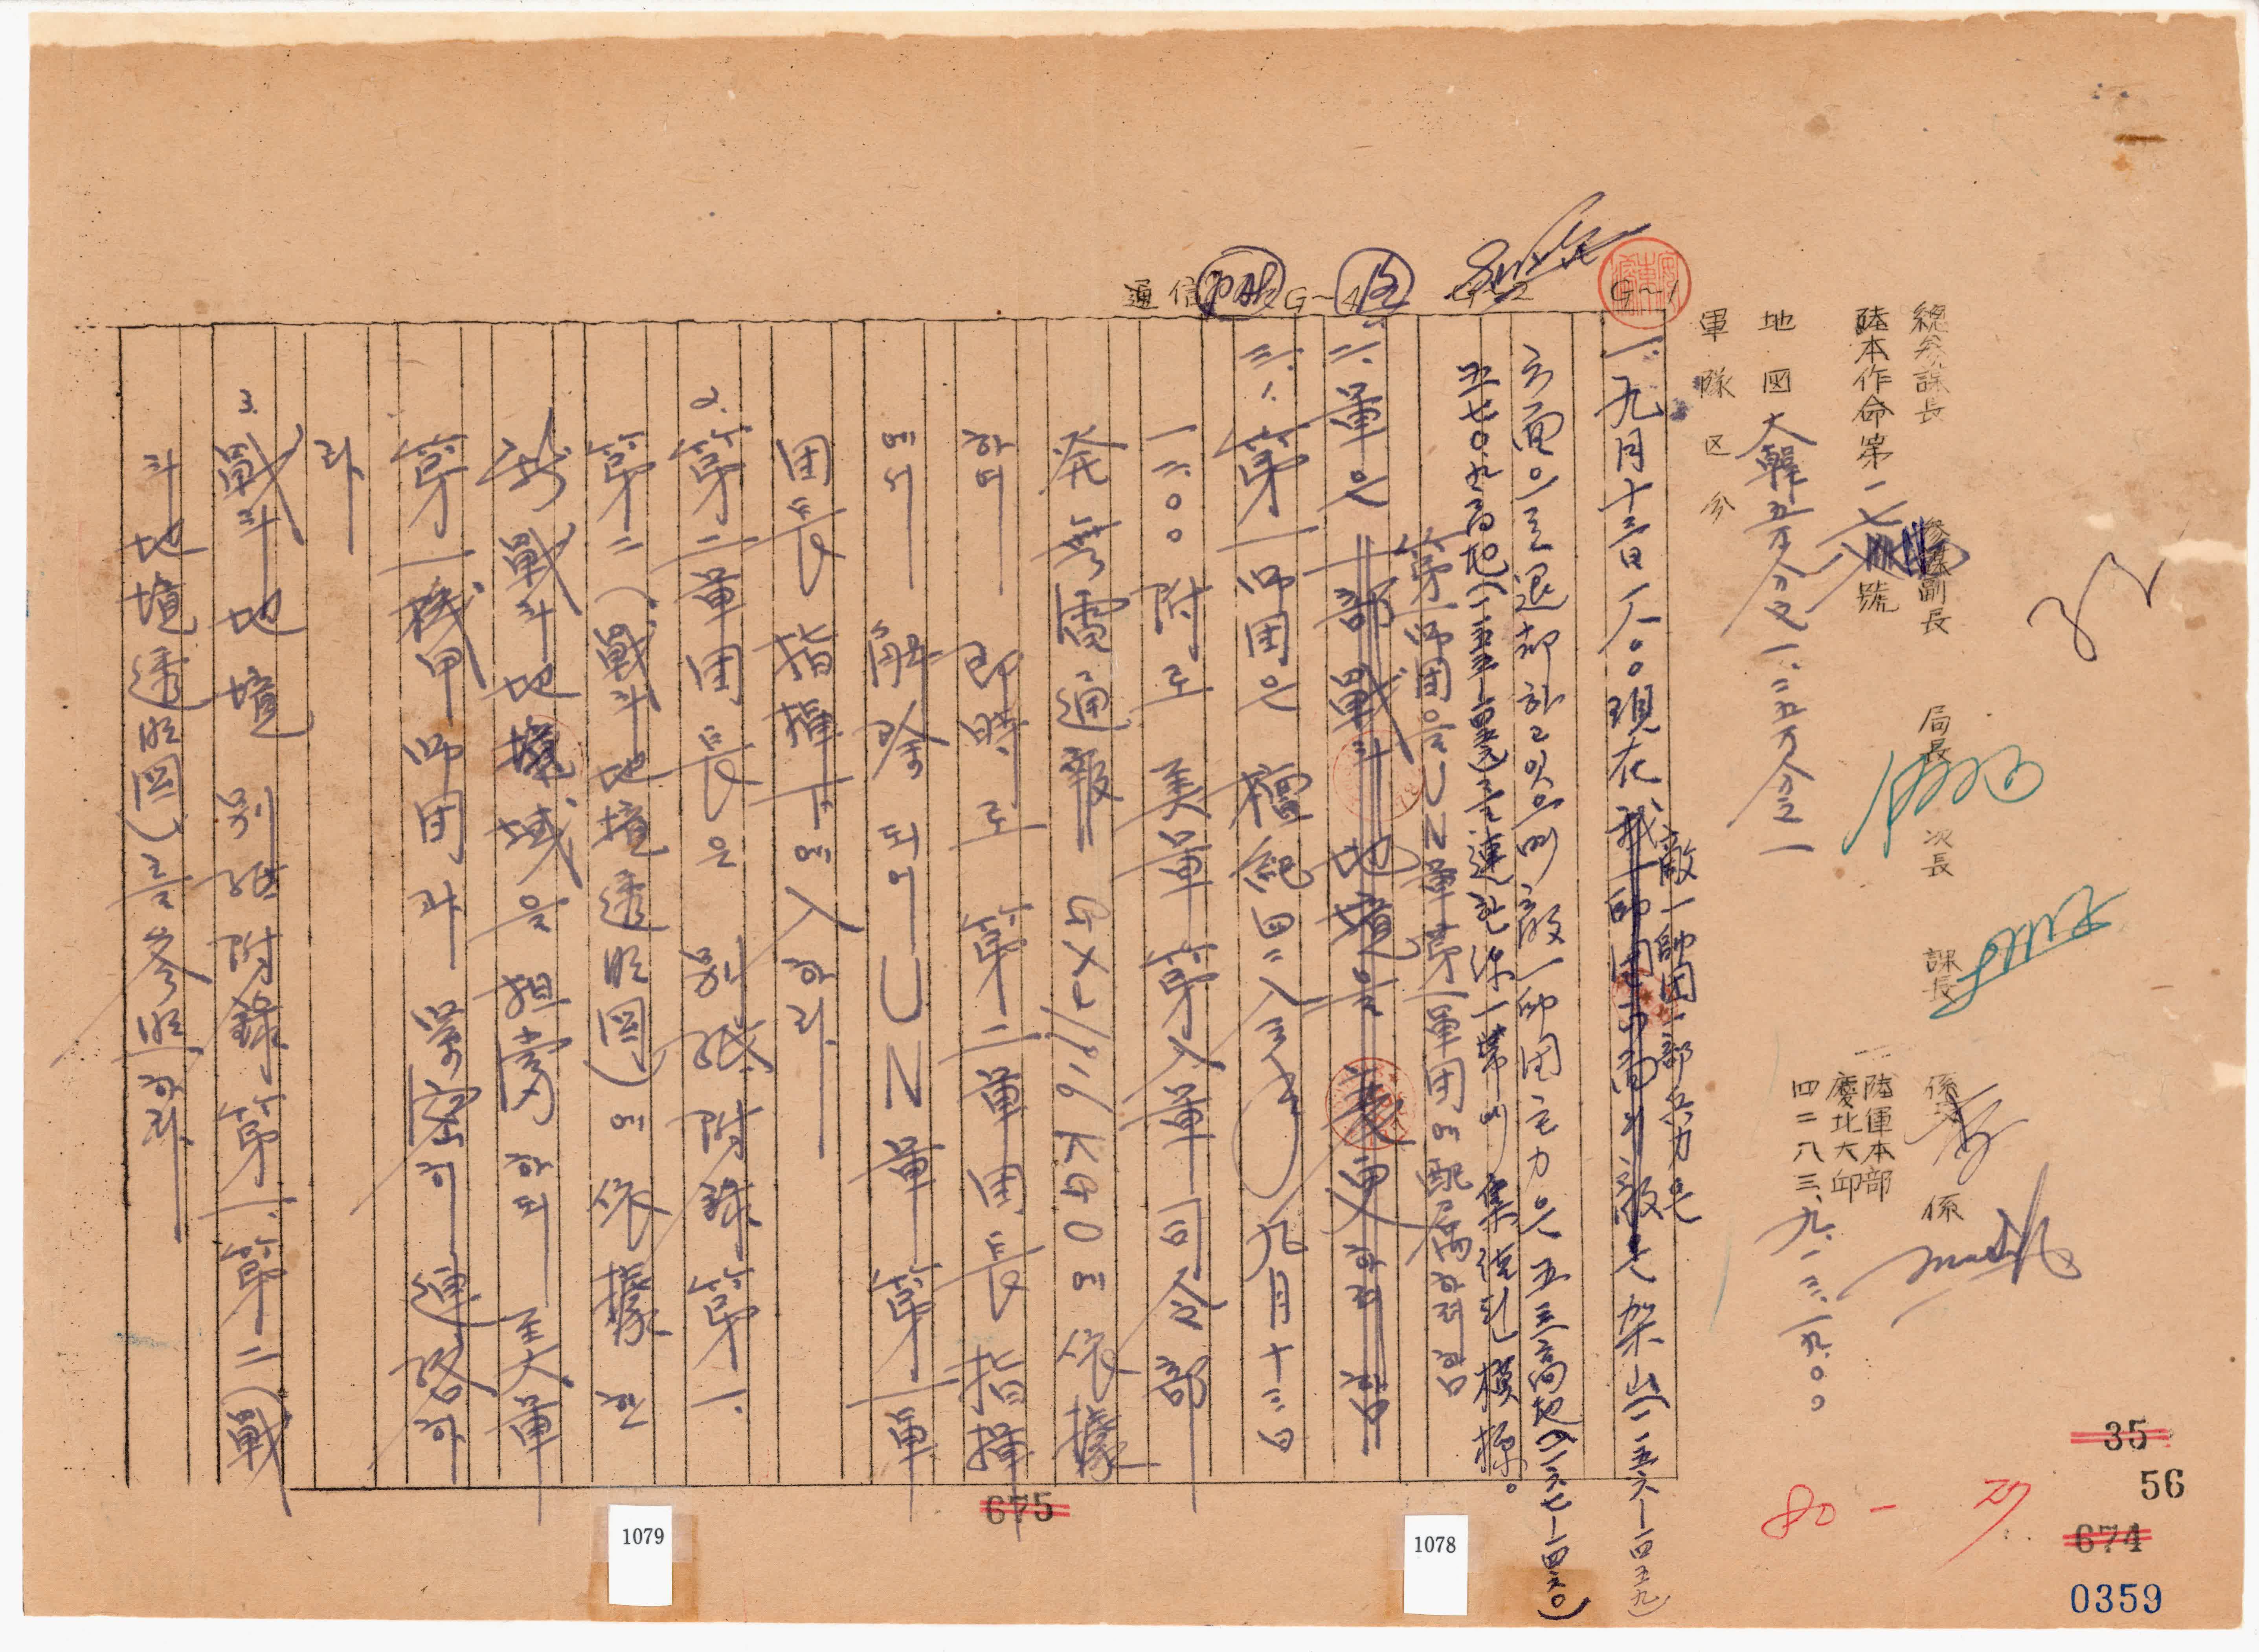 總參謀長 參謀副長 局長 次長 課長 係 係
陸本作命第一七 號
陸軍本部
慶北大邱
四二八三、九、一三、一九〇〇
地図 大韓五万分之一、二五万分之一
軍隊区分
G~1
G~2
G~4
通信
一、九月十三日一八〇〇現在 敵一師団一部兵力은 架山(一一五六—一四五九)
方面으로 退却하고있으며 敵一師団主力은 五三三高地(一一六七—一四六〇)
五七〇.九高地 를 連한線一帶에 集結한模様。
第一師団을 UN軍第一軍団에 配属하려함
二、軍은 一部戰斗地境을 変更하려함
三、1、第一師団은 檀紀四二八三年九月十三日
一二〇〇附로 美軍第八軍司令部
発無電通報 에依據
하여 即時로 第二軍団長指揮
에서 解除되어 UN軍第一軍
団長指揮下에入하라
2. 第二軍団長은 別紙附錄第一、
第二(戰斗地境透明図)에依據한
新戰斗地域을 担當하되 美軍
第一機甲師団과 緊密히連絡하
라
3. 戰斗地境 別紙附錄第一、第二(戰
斗地境透明図)를參照하라
1079
675
1078
80 -
35
56
674
0359